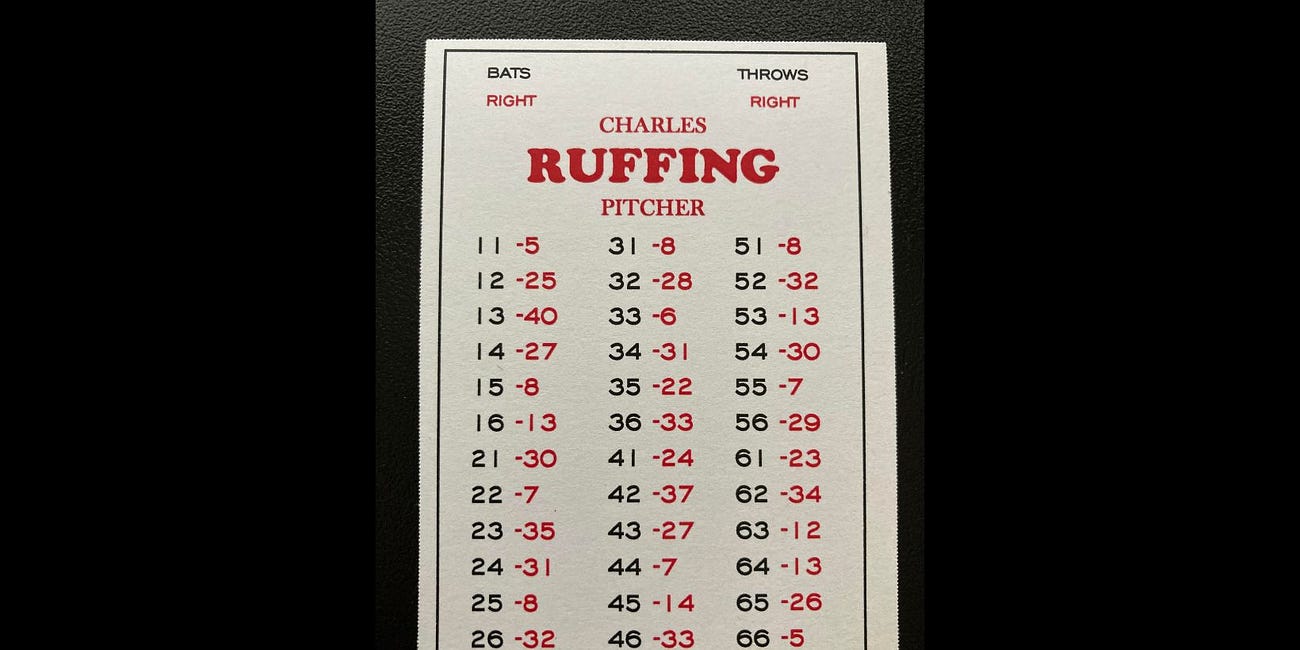 BATS THROWS
RIGHT RIGHT
CHARLES
RUFFING
PITCHER
11 -5 31 -8 51 -8
12 -25 32 -28 52 -32
13 -40 33 -6 53 -13
14 -27 34 -31 54 -30
15 -8 35 -22 55 -7
16 -13 36 -33 56 -29
21 -30 41 -24 61 -23
22 -7 42 -37 62 -34
23 -35 43 -27 63 -12
24 -31 44 -7 64 -13
25 -8 45 -14 65 -26
26 -32 46 -33 66 -5